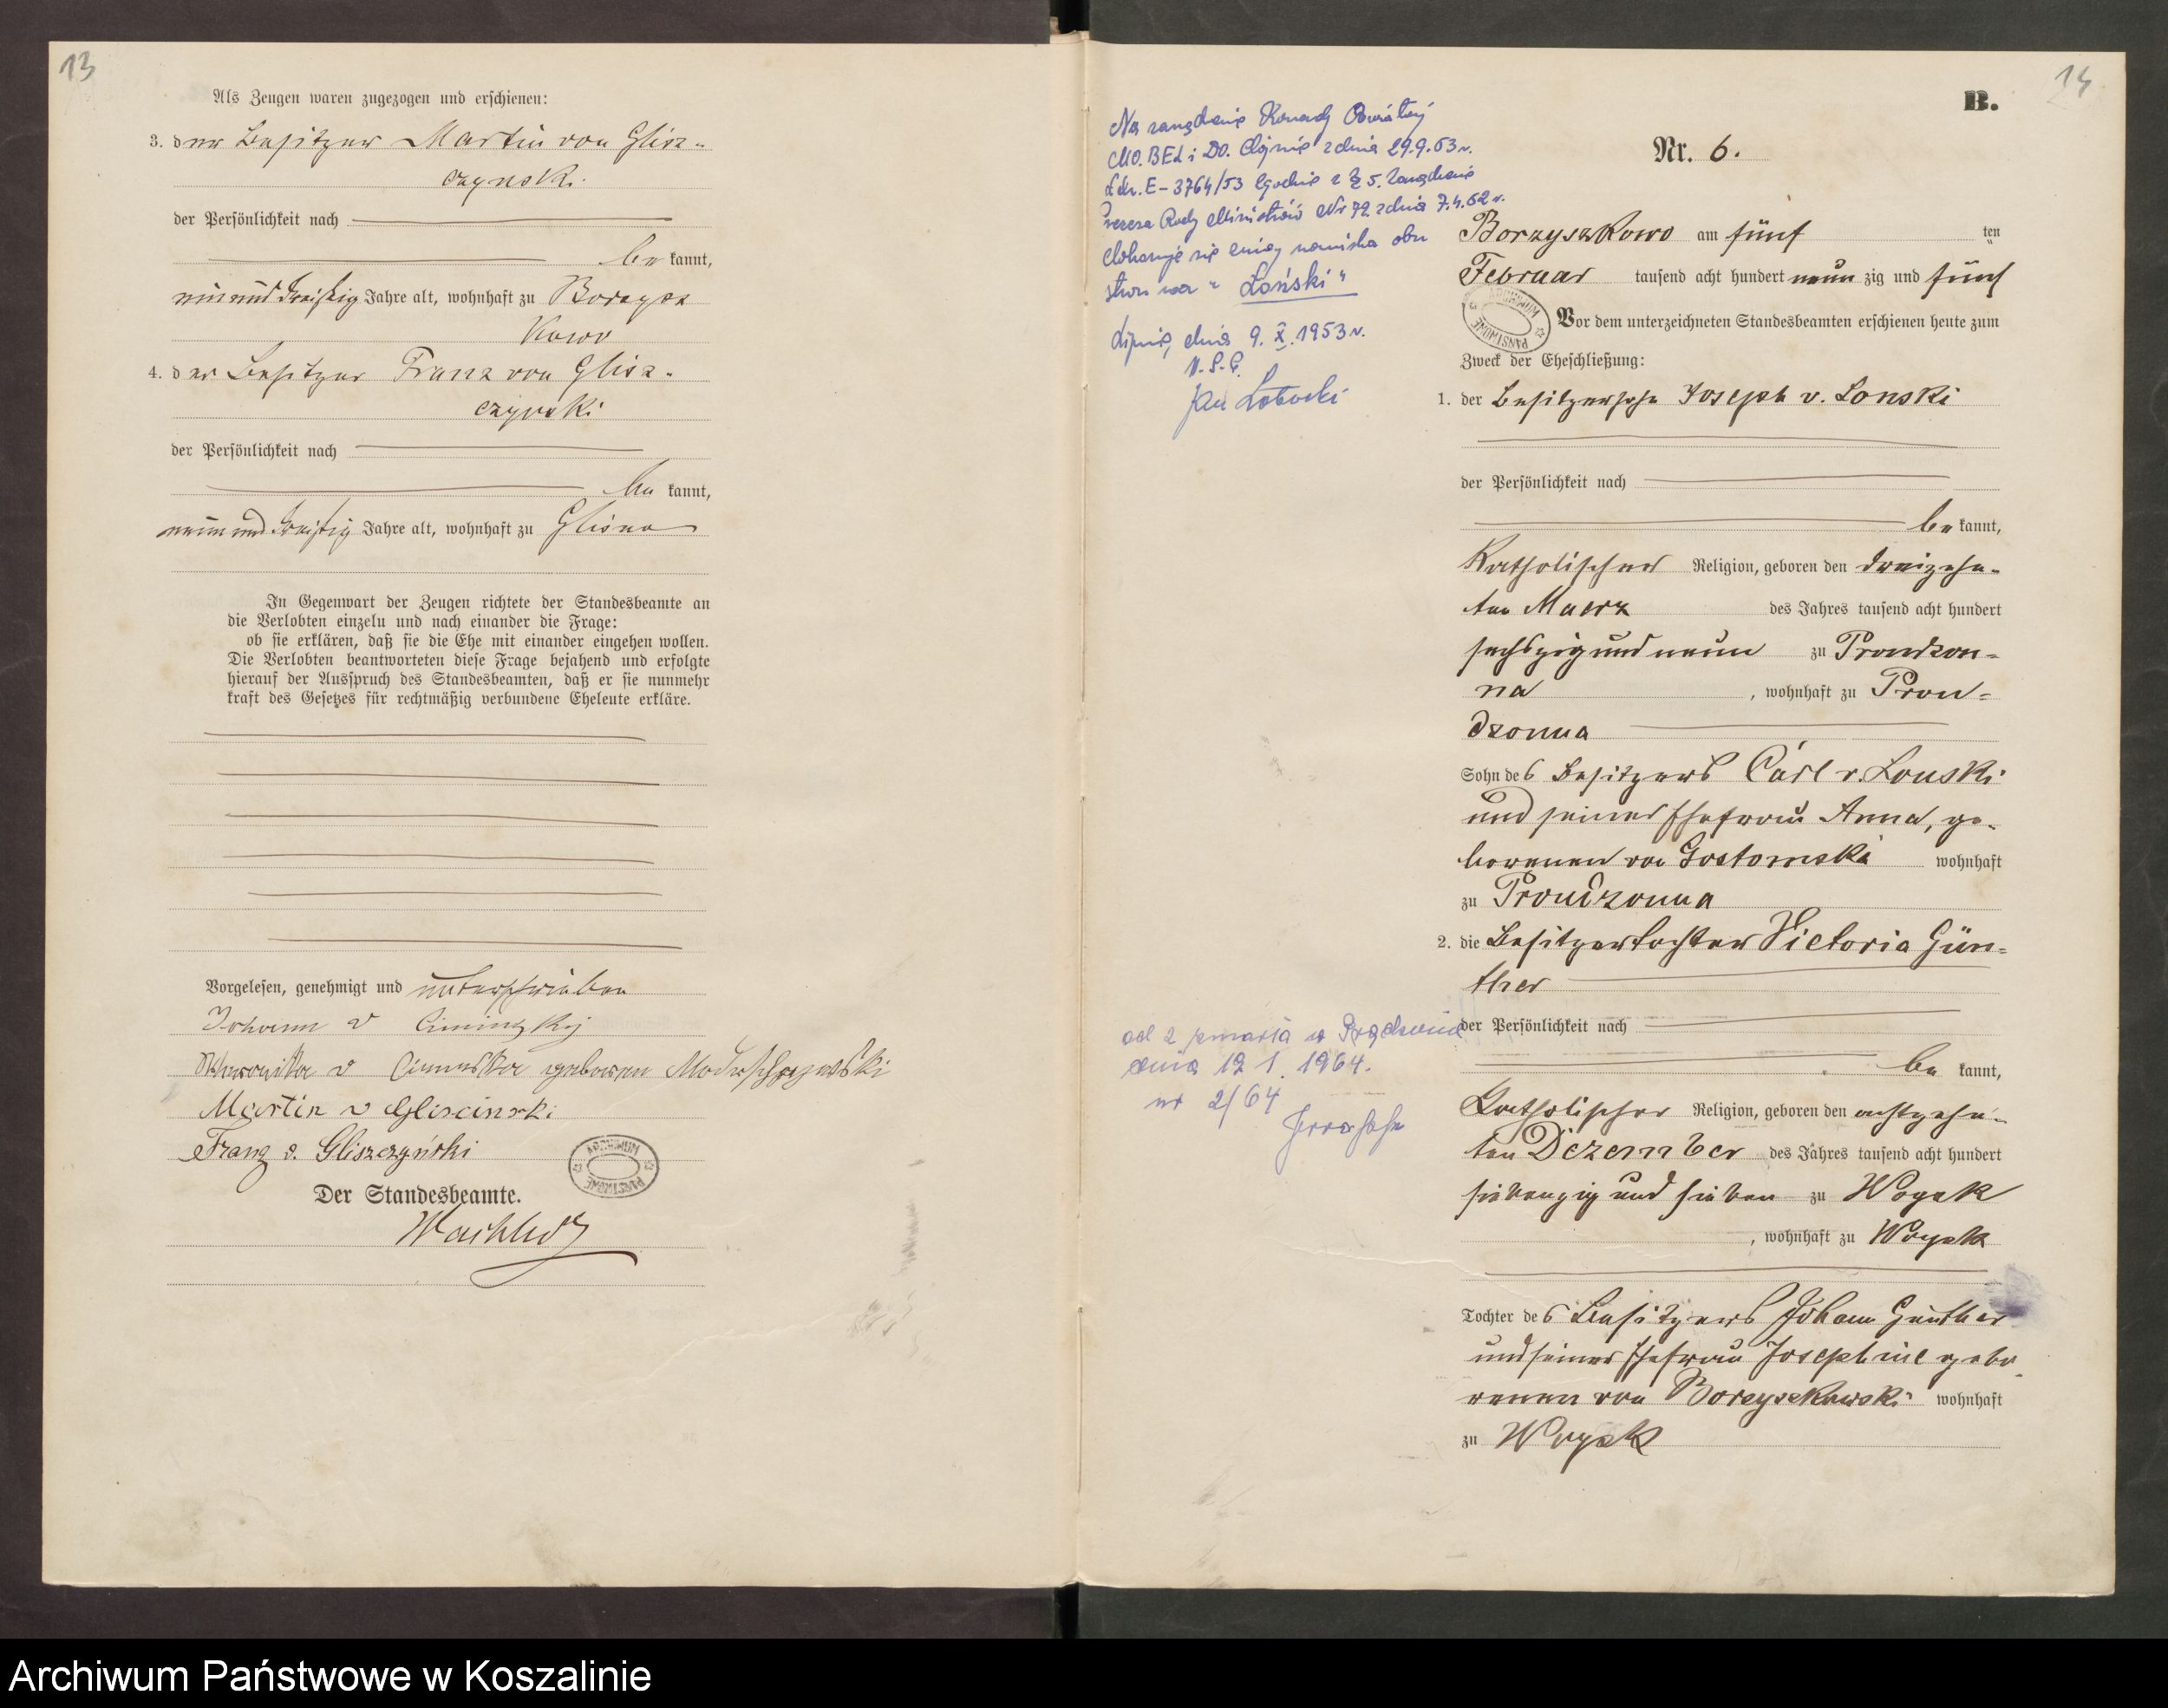 13
Als Zeugen waren zugezogen und erschienen:
3. der Besitzer Martin von Glisz-
czynski
der Persönlichkeit nach
be kannt,
ein und dreißig Jahre alt, wohnhaft zu Borzysz
kowo
4. der Besitzer Franz von Glisz-
czynski
der Persönlichkeit nach
be kannt,
neun und dreißig Jahre alt, wohnhaft zu Glisno
In Gegenwart der Zeugen richtete der Standesbeamte an
die Verlobten einzeln und nach einander die Frage:
ob sie erklären, daß sie die Ehe mit einander eingehen wollen.
Die Verlobten beantworteten diese Frage bejahend und erfolgte
hierauf der Ausspruch des Standesbeamten, daß er sie nunmehr
kraft des Gesetzes für rechtmäßig verbundene Eheleute erkläre.
Vorgelesen, genehmigt und unterschrieben
Johann v
v geboren
Martin v Gliscinski
Franz v. Gliszczyński
ARCHIWUM PAŃSTWOWE
Der Standesbeamte.
14
B.
Nr. 6.
Na
MO. BEL i DO. z dnia 29.9.53 r.
E-3764/53 zgodnie z § 5.
Prezesa Rady Ministrów Nr 72 z dnia 7.4.52 r.
się nazwiska obu
stron na "Łoński"
Lipnic, dnia 9.X.1953 r.
Jan
Borzyszkowo am fünf ten
Februar tausend acht hundert neun zig und fünf
ARCHIWUM PAŃSTWOWE
Vor dem unterzeichneten Standesbeamten erschienen heute zum
Zweck der Eheschließung:
1. der Besitzersohn Joseph v. Lonski
der Persönlichkeit nach
be kannt,
Katholischer Religion, geboren den dreizehn-
ten Maerz des Jahres tausend acht hundert
sechszig und neun zu Prondzon-
na, wohnhaft zu Pron-
dzonna
Sohn des Besitzers Carl v. Lonski
und seiner Ehefrau Anna, ge-
borenen von Gostomski wohnhaft
zu Prondzonna
2. die Besitzertochter Victoria Gün-
ther
od 2 zmarła w
dnia 12 1. 1964.
nr 2/64
der Persönlichkeit nach
be kannt,
Katholischer Religion, geboren den achtzehn-
ten Dezember des Jahres tausend acht hundert
siebenzig und sieben zu Woysk
, wohnhaft zu Woysk
Tochter des Besitzers Johann Günther
und seiner Ehefrau Josephine gebo
renen von Borzyszkowski wohnhaft
zu Woysk
Archiwum Państwowe w Koszalinie